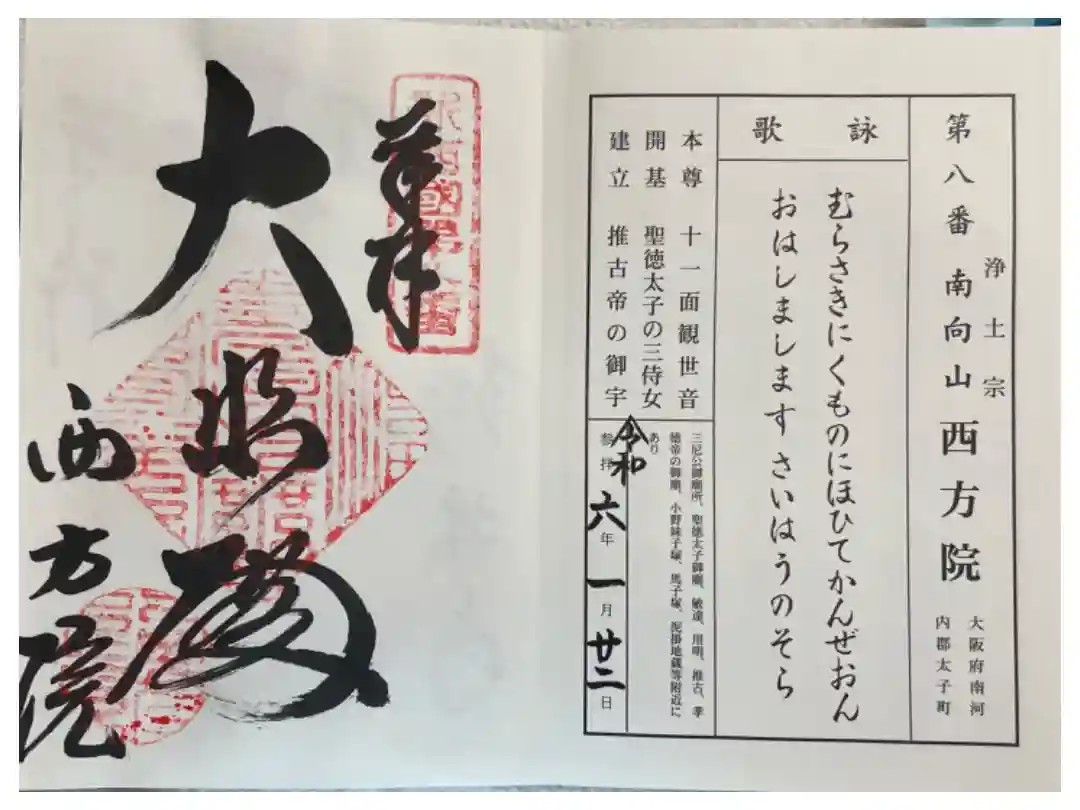 第八番 浄土宗 南向山 西方院
大阪府南河
内郡太子町
詠歌
むらさきにくものにほひてかんぜおん
おはしましますさいはうのそら
本尊 十一面観世音
開基 聖徳太子の三侍女
建立 推古帝の御宇
三尼公御廟所、聖徳太子御廟、敏達、用明、推古、孝
徳帝の御廟、小野妹子塚、馬子塚、泥掛地蔵等附近に
あり
参拝 令和六年一月廿二日
奉拝
大悲殿
西方院